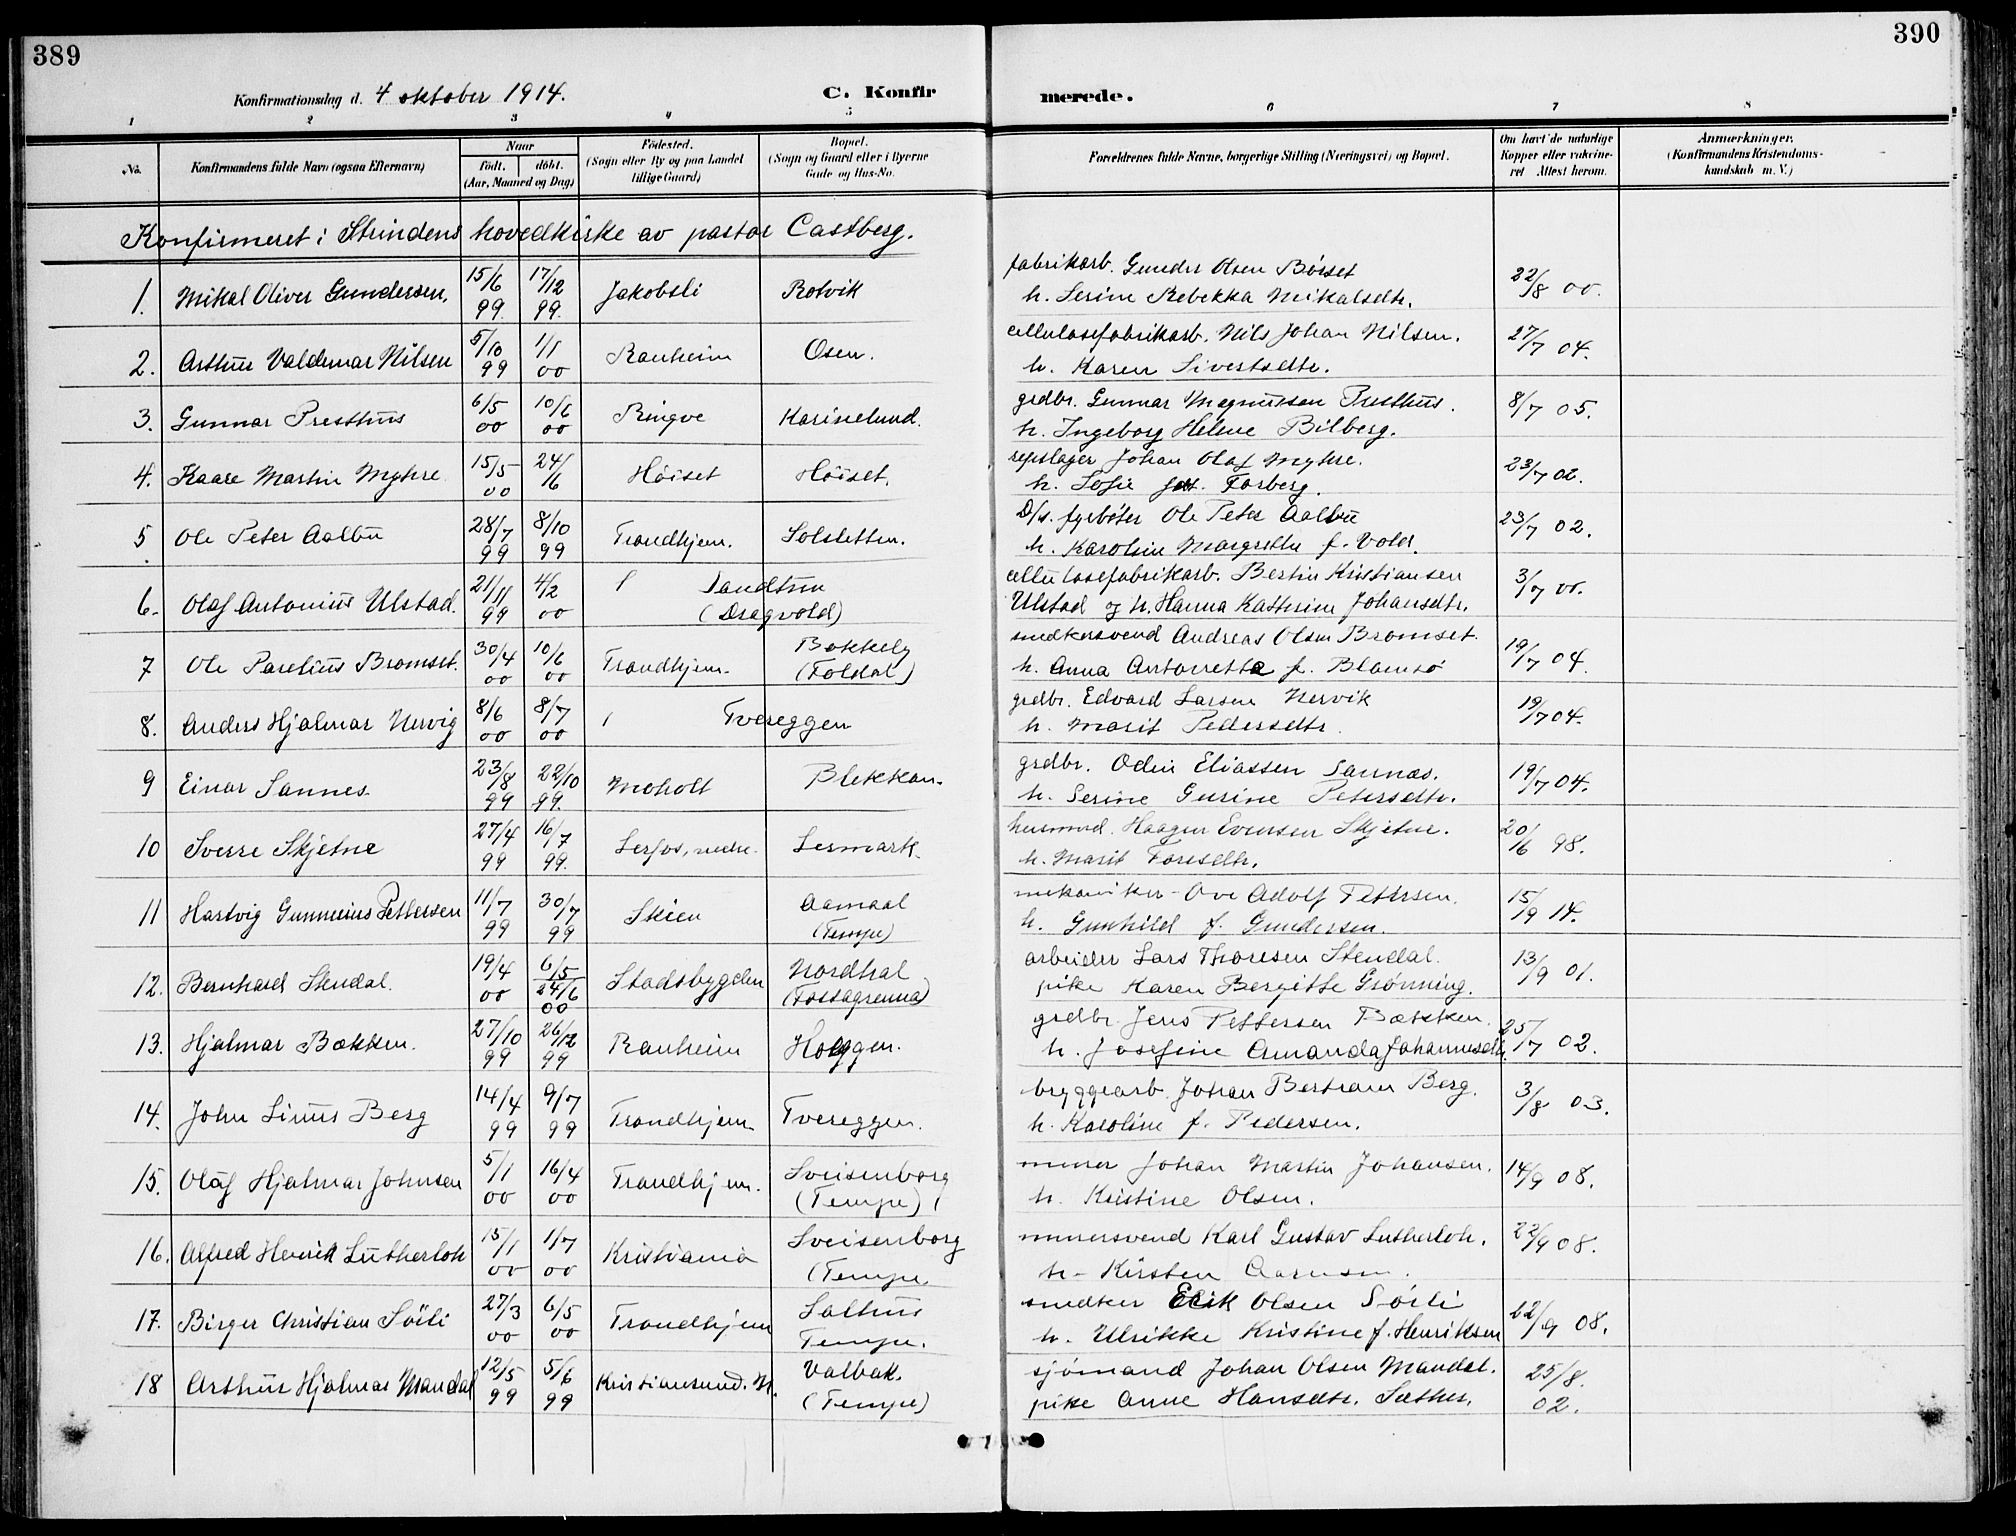 389
390
Konfirmationsdag d. 4 oktober 1914.
C. Konfir
merede.
1 2 3 4 5 6 7 8
No.
Konfirmandens fulde Navn (ogsaa Efternavn)
Naar
født. døbt.
(Aar, Maaned og Dag)
Fødested.
(Sogn eller By og paa Landet
tillige Gaard)
Bopæl.
(Sogn og Gaard eller i Byerne
Gade og Hus-No.
Forældrenes fulde Navne, borgerlige Stilling (Næringsvei) og Bopæl.
Om havt de naturlige
Kopper eller vakcine-
ret Attest herom.
Anmærkninger.
(Konfirmandens Kristendoms-
kundskab m. V.)
Konfirmeret i Strindens hovedkirke av pastor Castberg.
1. Mikal Oliver Gundersen. 15/6 99. 17/12 99. Jakobsli Rotvik fabrikarb. Gunder Olsen Børset
h. Serine Rebekka Mikalsdtr. 22/8 00.
2. Arthur Valdemar Nilsen 5/10 99 1/1 00 Ranheim Osen. cellulosefabrikarb. Nils Johan Nilsen.
h. Karen Sivertsdtr. 27/7 04.
3. Gunnar Presthus 6/5 00 10/6 00 Ringve Karinelund. grdbr. Gunnar Magnussen Presthus.
h. Ingeborg Helene Bilberg. 8/7 05.
4. Kaare Martin Myhre 15/5 00 24/6 Høiset Høiset. repslager Johan Olaf Myhre.
h. Sofie fdt. Forberg. 23/7 02.
5. Ole Peter Aalbu 28/7 99 8/10 99 Trondhjem. Solsletten. D/s. fyrbøter Ole Peter Aalbu
h. Karoline Margrethe f. Vold. 23/7 02.
6. Olaf Antonius Ulstad. 21/11 99 4/2 00 Sandtun
(Dragvold) cellulosefabrikarb. Bertin Kristiansen
Ulstad og h. Hanna Katherine Johansdtr. 3/7 00.
7 Ole Parelius Bromset. 30/4 00 10/6 00 Trondhjem. Bakkely
(Foldal) snedkersvend Andreas Olsen Bromset.
h. Anna Antonette f. Blamsø 19/7 04.
8. Anders Hjalmar Nervig 8/6 00 8/7 00 Tvereggen grdbr. Edvard Larsen Nervik
h. Marit Pedersdtr. 19/7 04.
9 Einar Sannes 23/8 99 22/10 99. Moholt Blekkan. grdbr. Odin Eliassen Sannæs.
h. Serine Gurine Petersdtr. 19/7 04.
10 Sverre Skjetne 27/4 99 16/7 99. Lerfos, nedre. Lermark. husmand. Haagen Evensen Skjetne.
h. Marit Toresdtr. 20/6 98.
11 Hartvig Gunnerius Pettersen 11/7 99 30/7 99 Skien Aamaal
(Tempe) mekaniker Ove Adolf Pettersen.
h. Gunhild f. Gundersen. 15/9 14.
12. Bernhard Stendal. 19/4 00 6/5 24/6 00 Stadsbygden Nordhal
(Fossegrenna) arbeider Lars Thoresen Stendal.
pike Karen Bergitte Grønning. 13/9 01.
13. Hjalmar Bækken. 27/10 99 26/12 99 Ranheim Hoggen. grdbr. Jens Pettersen Bækken.
h. Josefine Amanda Johannesdtr. 25/7 02.
14. John Linus Berg 14/4 99 9/7 99 Trondhjem Tvereggen. bryggearb. Johan Bertram Berg.
h. Karoline f. Pedersen. 3/8 03.
15. Olaf Hjalmar Johnsen 5/1 00 16/4 00 Trondhjem. Sveisenborg
(Tempe) murer Johan Martin Johansen.
h. Kristine Olsen. 14/9 08.
16. Alfred Henrik Lutherloh 15/1 00 1/7 00 Kristiania Sveisenborg
(Tempe. murersvend Karl Gustav Lutherloh.
h. Kirsten Aarnsen. 22/9 08.
17. Birger Christian Sörli 27/3 00 6/5 00 Trondhjem Solhus
Tempe. snedker Erik Olsen Sörli
h. Ulrikke Kristine f. Henriksen 22/9 08.
18 Arthur Hjalmar Mandal 12/5 99 5/6 99 Kristiansund. N. Valbak.
(Tempe) sjømand Johan Olsen Mandal.
pike Anne Hansdtr. Sæther. 25/8. 02.